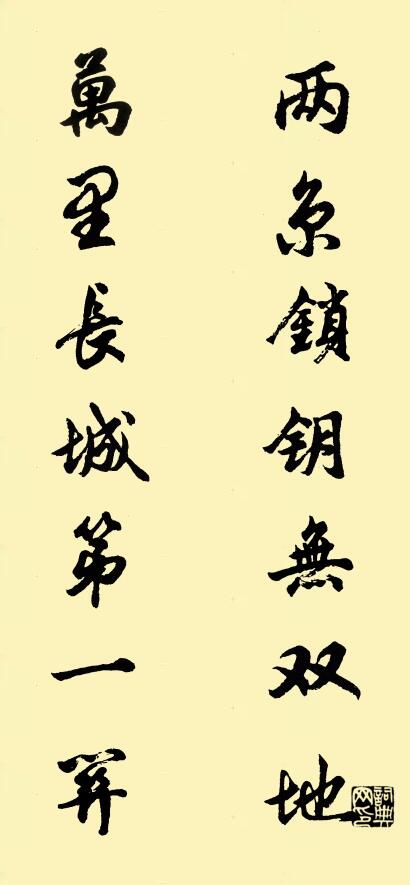 两京鎖钥無双地
萬里長城第一関
詞典网印